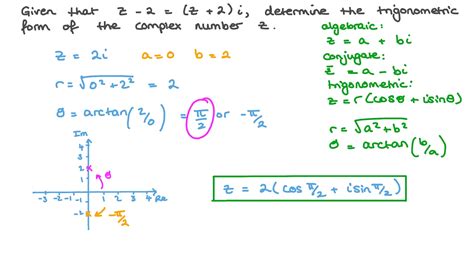 Given that z - 2 = (z + 2) i, determine the trigonometric
form of the complex number z.
z = 2i a = 0 b = 2
r = √0² + 2² = 2
θ = arctan(2/0) = π/2 or -π/2
Im
4
3
2
1
θ
-3 -2 -1 1 2 3 4 Re
-1
-2
-π/2
algebraic:
z = a + bi
conjugate:
z̄ = a - bi
trigonometric:
z = r (cosθ + isinθ)
r = √a² + b²
θ = arctan(b/a)
z = 2 (cos π/2 + isin π/2)